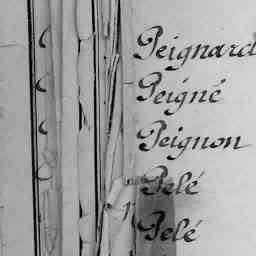 Peignard
Peigné
Peignon
Pelé
Pelé